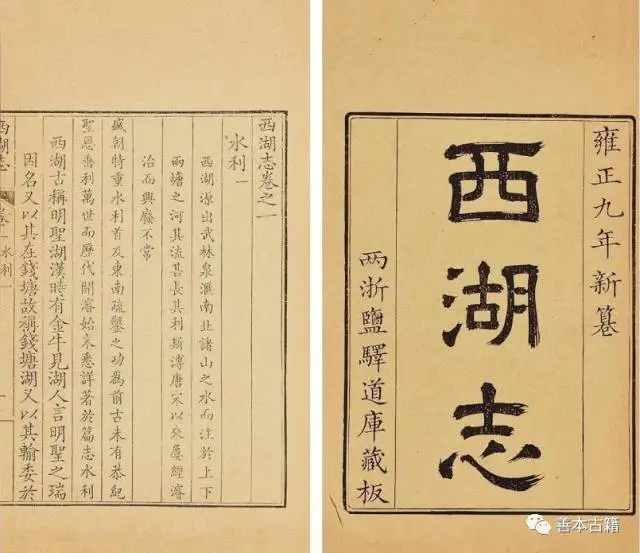 雍正九年新篹
西湖志
两浙鹽驛道庫藏板
西湖志卷之一
水利一
西湖源出武林泉滙南北諸山之水而注於上下
兩塘之河其流甚長其利斯溥唐宋以來屢經濬
治而興廢不常
盛朝特重水利首及東南疏鑿之功爲前古未有恭紀
聖恩垂利萬世而歷代開濬始末悉詳著於篇志水利
西湖古稱明聖湖漢時有金牛見湖人言明聖之瑞
因名又以其在錢塘故稱錢塘湖又以其輸委於
西湖志
水利一
善本古籍